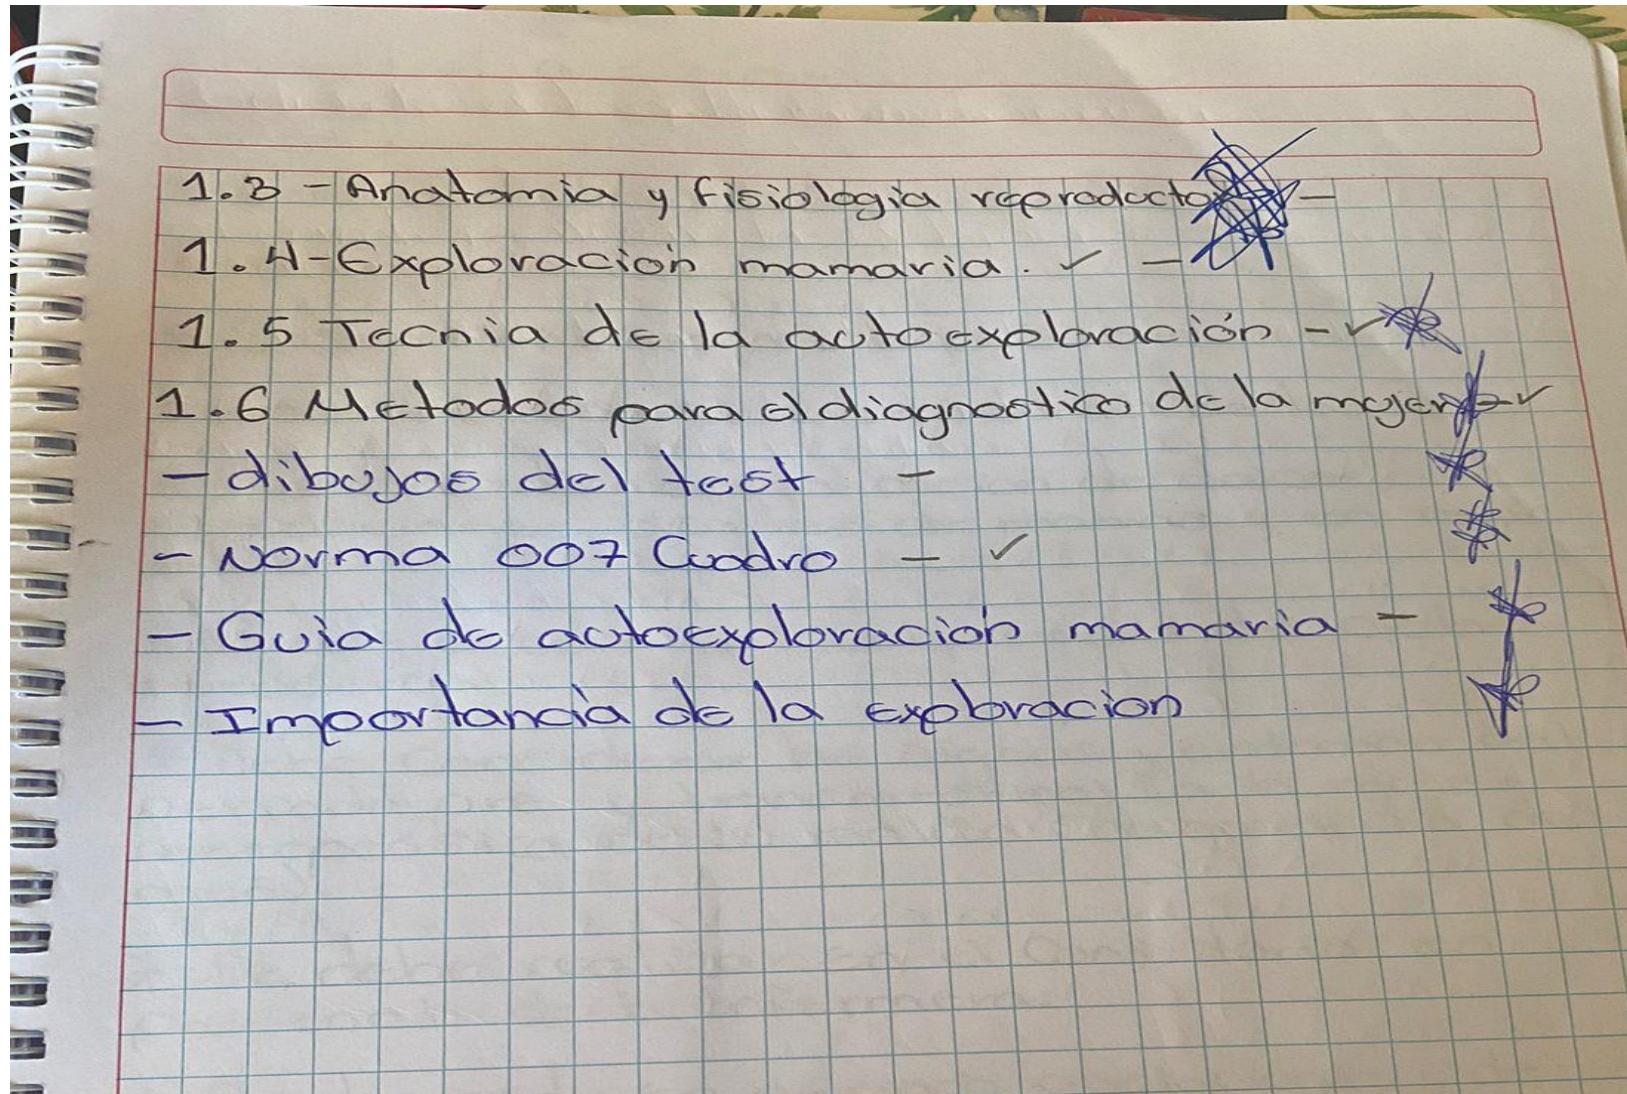 1.3 - Anatomia y fisiologia reproductor -
1.4 - Exploración mamaria. ✓ -
1.5 Tecnia de la autoexploración - ✓
1.6 Metodos para el diagnostico de la mujer - ✓
- dibujos del test -
- Norma 007 Cuadro - ✓
- Guia de autoexploración mamaria -
- Importancia de la exploracion